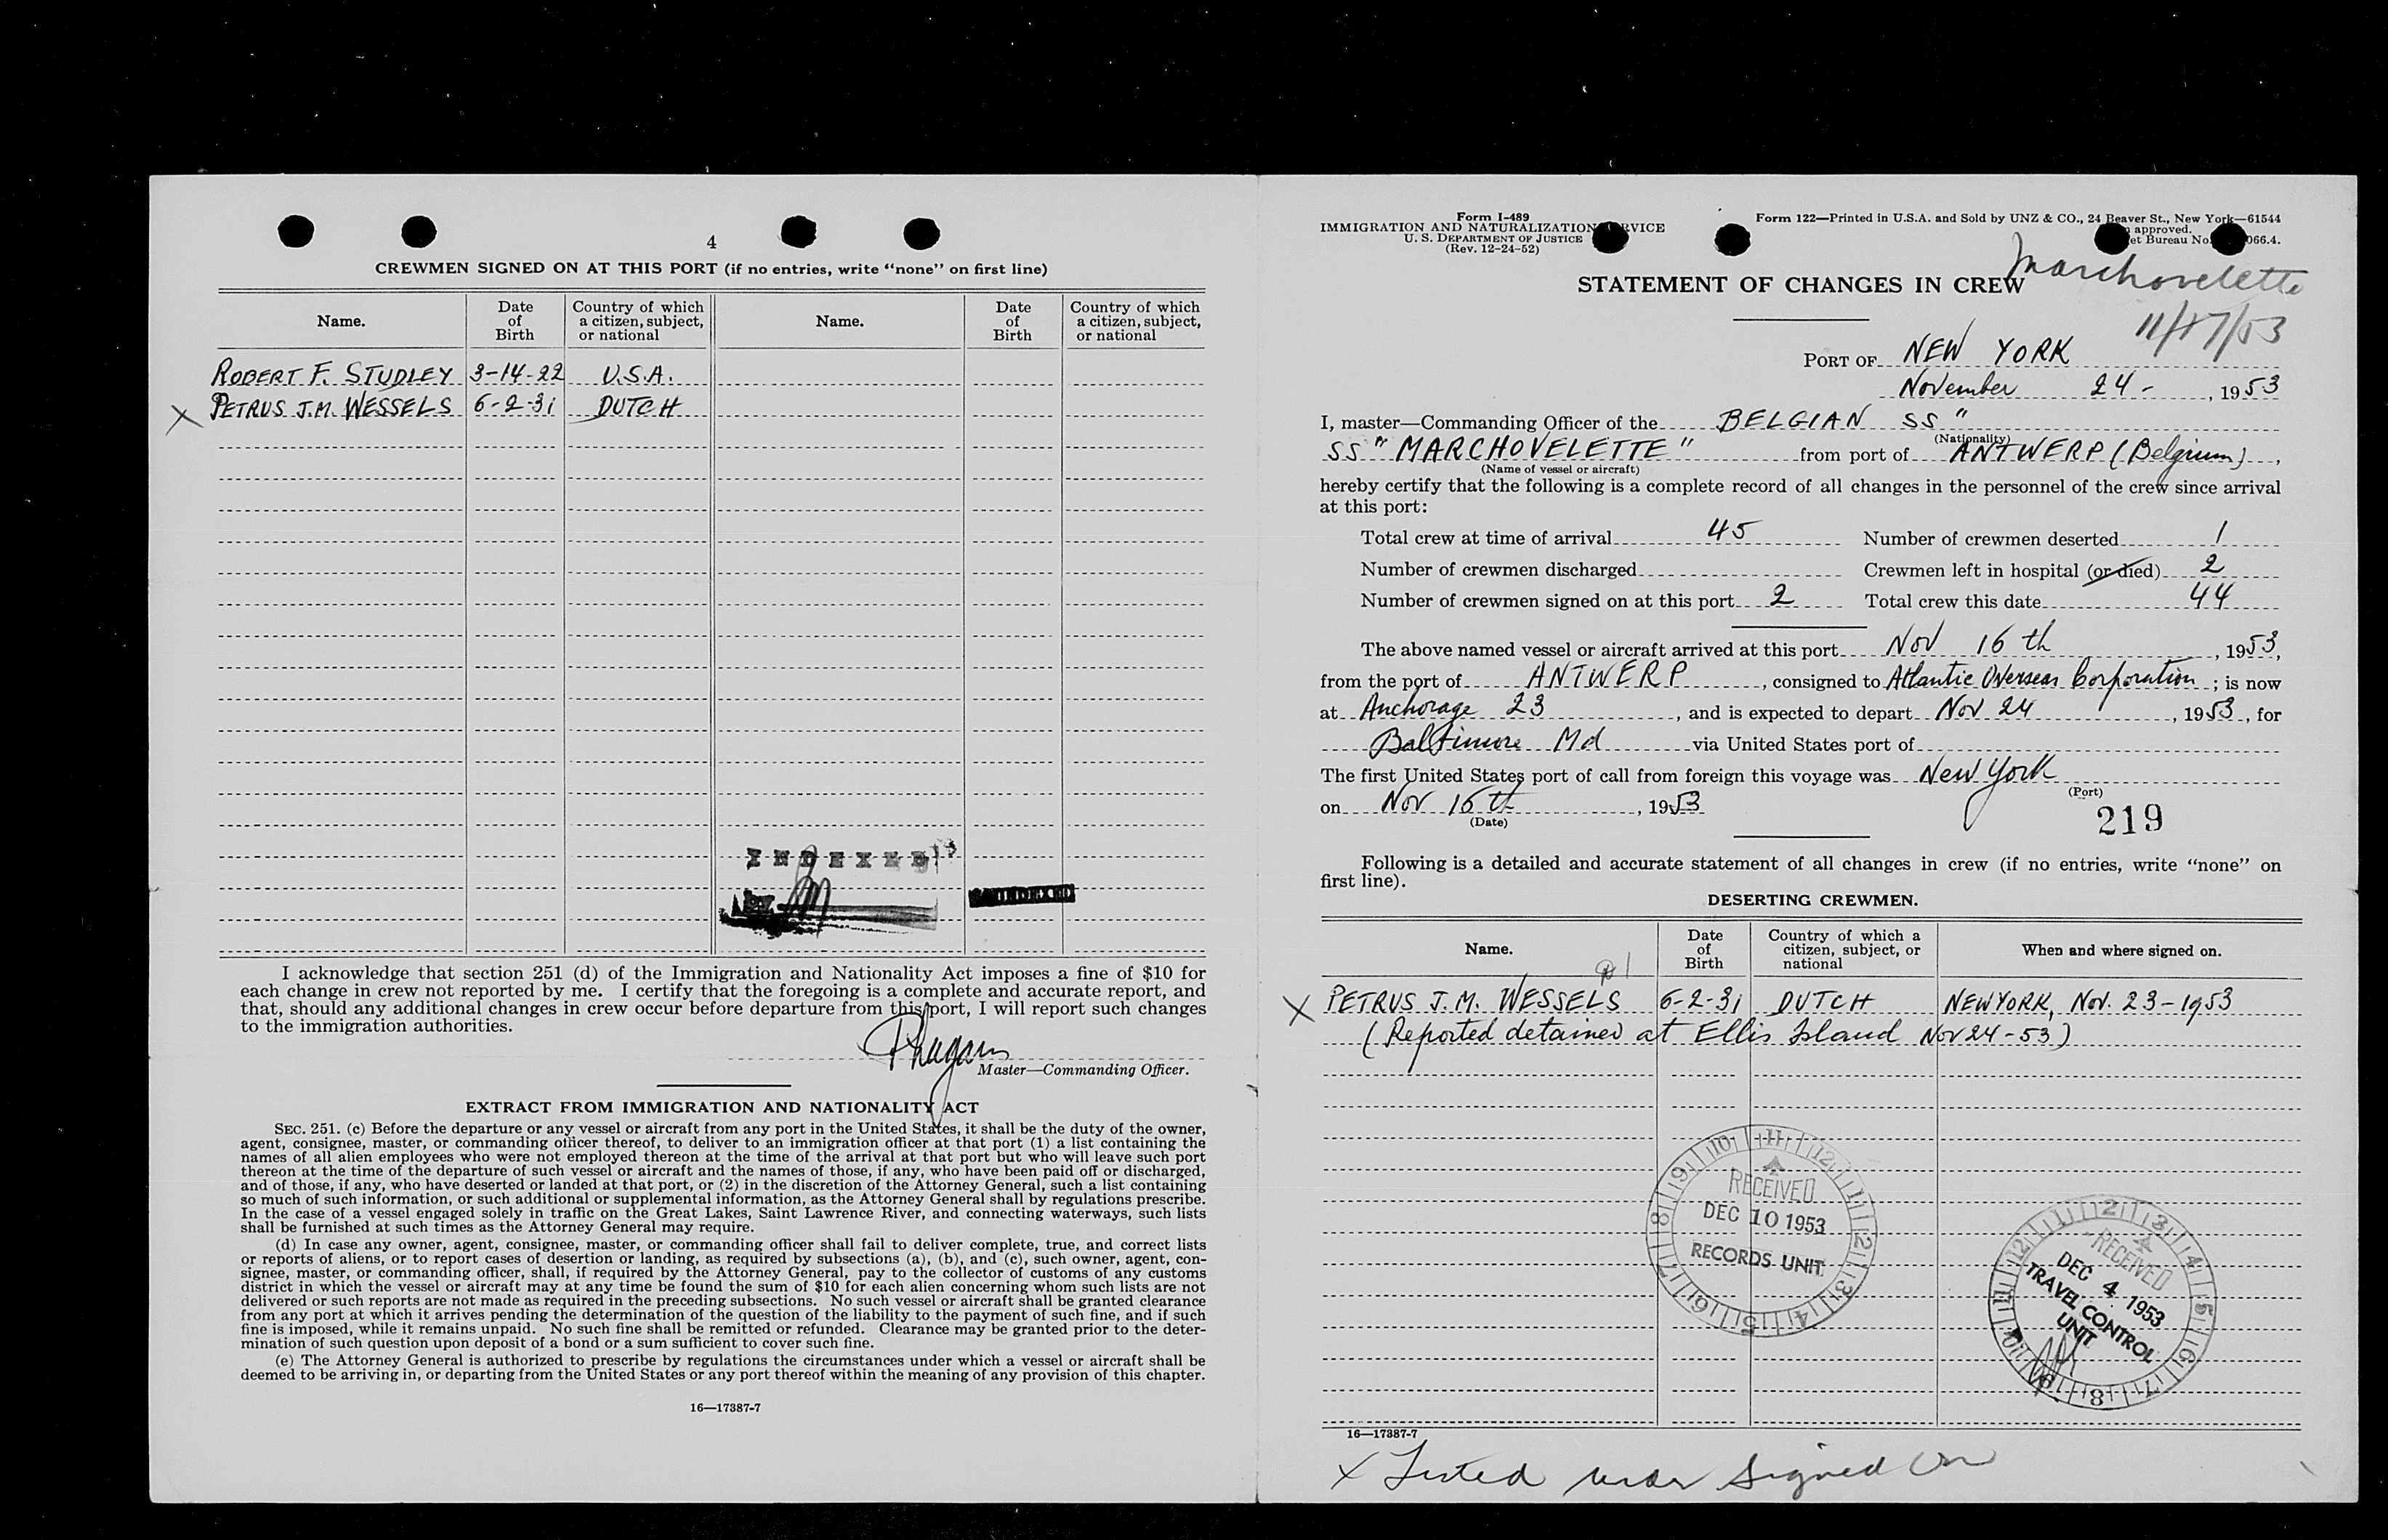 4
CREWMEN SIGNED ON AT THIS PORT (if no entries, write "none" on first line)
Name. Date of Birth Country of which a citizen, subject, or national Name. Date of Birth Country of which a citizen, subject, or national
ROBERT F. STUDLEY 3-14-22 U.S.A.
X PETRUS J.M. WESSELS 6-2-31 DUTCH
INDEXED
I acknowledge that section 251 (d) of the Immigration and Nationality Act imposes a fine of $10 for
each change in crew not reported by me. I certify that the foregoing is a complete and accurate report, and
that, should any additional changes in crew occur before departure from this port, I will report such changes
to the immigration authorities.
Master—Commanding Officer.
EXTRACT FROM IMMIGRATION AND NATIONALITY ACT
SEC. 251. (c) Before the departure or any vessel or aircraft from any port in the United States, it shall be the duty of the owner,
agent, consignee, master, or commanding officer thereof, to deliver to an immigration officer at that port (1) a list containing the
names of all alien employees who were not employed thereon at the time of the arrival at that port but who will leave such port
thereon at the time of the departure of such vessel or aircraft and the names of those, if any, who have been paid off or discharged,
and of those, if any, who have deserted or landed at that port, or (2) in the discretion of the Attorney General, such a list containing
so much of such information, or such additional or supplemental information, as the Attorney General shall by regulations prescribe.
In the case of a vessel engaged solely in traffic on the Great Lakes, Saint Lawrence River, and connecting waterways, such lists
shall be furnished at such times as the Attorney General may require.
(d) In case any owner, agent, consignee, master, or commanding officer shall fail to deliver complete, true, and correct lists
or reports of aliens, or to report cases of desertion or landing, as required by subsections (a), (b), and (c), such owner, agent, con-
signee, master, or commanding officer, shall, if required by the Attorney General, pay to the collector of customs of any customs
district in which the vessel or aircraft may at any time be found the sum of $10 for each alien concerning whom such lists are not
delivered or such reports are not made as required in the preceding subsections. No such vessel or aircraft shall be granted clearance
from any port at which it arrives pending the determination of the question of the liability to the payment of such fine, and if such
fine is imposed, while it remains unpaid. No such fine shall be remitted or refunded. Clearance may be granted prior to the deter-
mination of such question upon deposit of a bond or a sum sufficient to cover such fine.
(e) The Attorney General is authorized to prescribe by regulations the circumstances under which a vessel or aircraft shall be
deemed to be arriving in, or departing from the United States or any port thereof within the meaning of any provision of this chapter.
16—17387-7
Form I-489
IMMIGRATION AND NATURALIZATION RVICE
U. S. DEPARTMENT OF JUSTICE
(Rev. 12-24-52)
Form 122—Printed in U.S.A. and Sold by UNZ & CO., 24 Beaver St., New York—61544
approved.
et Bureau No. 066.4.
Marchovelette
STATEMENT OF CHANGES IN CREW
11/17/53
PORT OF NEW YORK
November 24-, 1953
I, master—Commanding Officer of the BELGIAN SS"
(Nationality)
SS "MARCHOVELETTE" from port of ANTWERP (Belgium),
(Name of vessel or aircraft)
hereby certify that the following is a complete record of all changes in the personnel of the crew since arrival
at this port:
Total crew at time of arrival 45 Number of crewmen deserted 1
Number of crewmen discharged Crewmen left in hospital (or died) 2
Number of crewmen signed on at this port 2 Total crew this date 44
The above named vessel or aircraft arrived at this port Nov 16 th, 1953,
from the port of ANTWERP, consigned to Atlantic Overseas Corporation; is now
at Anchorage 23, and is expected to depart Nov 24, 1953, for
Baltimore Md via United States port of
The first United States port of call from foreign this voyage was New York
(Port)
on Nov 16 th, 1953
(Date)
219
Following is a detailed and accurate statement of all changes in crew (if no entries, write "none" on
first line).
DESERTING CREWMEN.
Name. Date of Birth Country of which a citizen, subject, or national When and where signed on.
X PETRUS J.M. WESSELS 6-2-31 DUTCH NEW YORK, Nov. 23-1953
(Reported detained at Ellis Island Nov 24-53)
RECEIVED
DEC 10 1953
RECORDS UNIT
RECEIVED
DEC 4 1953
TRAVEL CONTROL
UNIT
16—17387-7
X Listed under Signed On